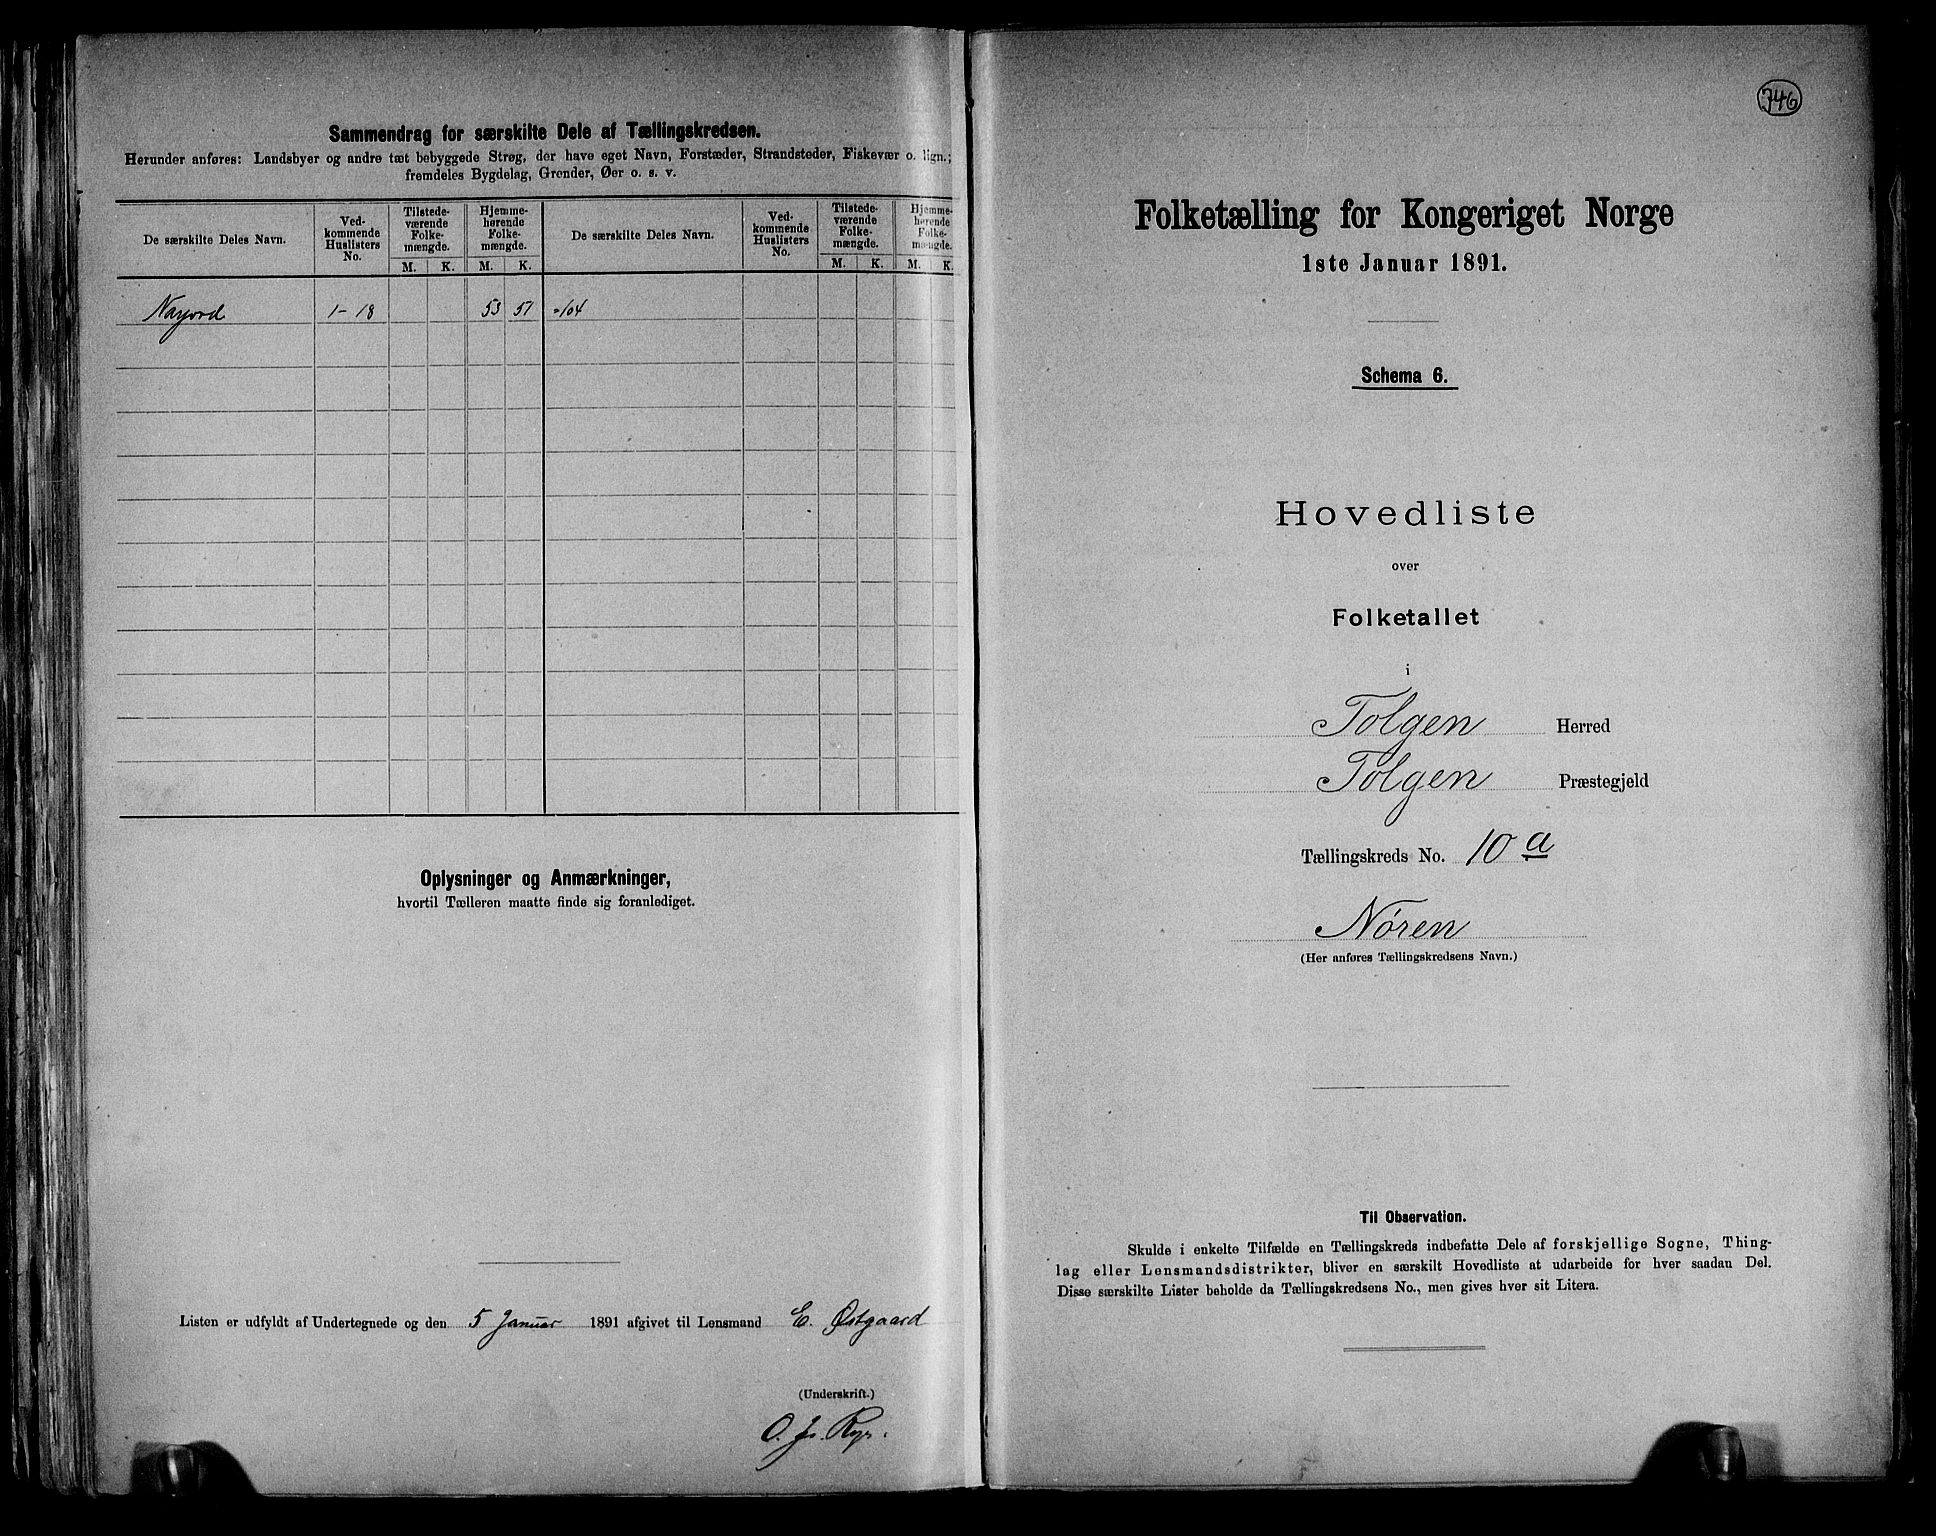 Sammendrag for særskilte Dele af Tællingskredsen.
Herunder anføres: Landsbyer og andre tæt bebyggede Strøg, der have eget Navn, Forstæder, Strandsteder, Fiskevær o. lign.;
fremdeles Bygdelag, Grender, Øer o. s. v.
De særskilte Deles Navn. Ved-kommende Huslisters No. Tilstede-værende Folke-mængde. Hjemme-hørende Folke-mængde. De særskilte Deles Navn. Ved-kommende Huslisters No. Tilstede-værende Folke-mængde. Hjemme-hørende Folke-mængde.
M. K. M. K. M. K. M. K.
1-18 53 51 =104
Oplysninger og Anmærkninger,
hvortil Tælleren maatte finde sig foranlediget.
Listen er udfyldt af Undertegnede og den 5 Januar 1891 afgivet til Lensmand E. Østgaard
(Underskrift.)
746
Folketælling for Kongeriget Norge
1ste Januar 1891.
Schema 6.
Hovedliste
over
Folketallet
i
Tolgen Herred
Tolgen Præstegjeld
Tællingskreds No. 10 a
Nøren
(Her anføres Tællingskredsens Navn.)
Til Observation.
Skulde i enkelte Tilfælde en Tællingskreds indbefatte Dele af forskjellige Sogne, Thing-
lag eller Lensmandsdistrikter, bliver en særskilt Hovedliste at udarbeide for hver saadan Del.
Disse særskilte Lister beholde da Tællingskredsens No., men gives hver sit Litera.